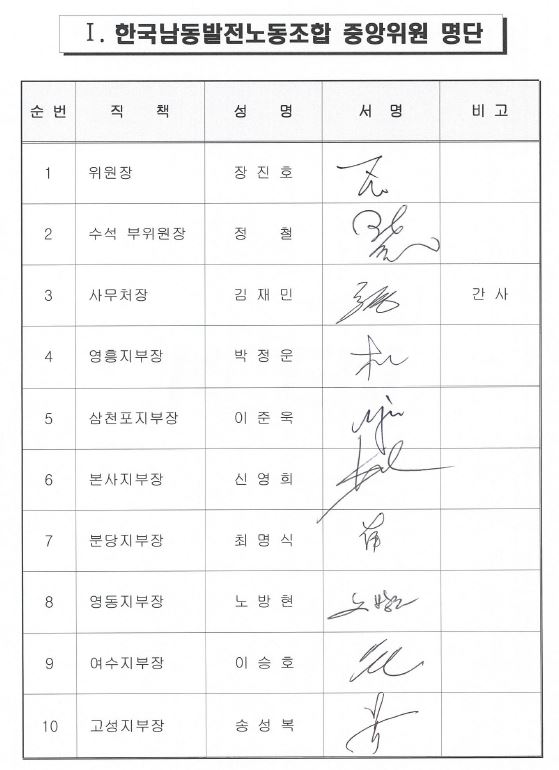 Ⅰ. 한국남동발전노동조합 중앙위원 명단
순 번 직 책 성 명 서 명 비 고
1 위원장 장 진 호
2 수석 부위원장 정 철
3 사무처장 김 재 민 간 사
4 영흥지부장 박 정 운
5 삼천포지부장 이 준 욱
6 본사지부장 신 영 희
7 분당지부장 최 명 식
8 영동지부장 노 방 현 노방현
9 여수지부장 이 승 호
10 고성지부장 송 성 복